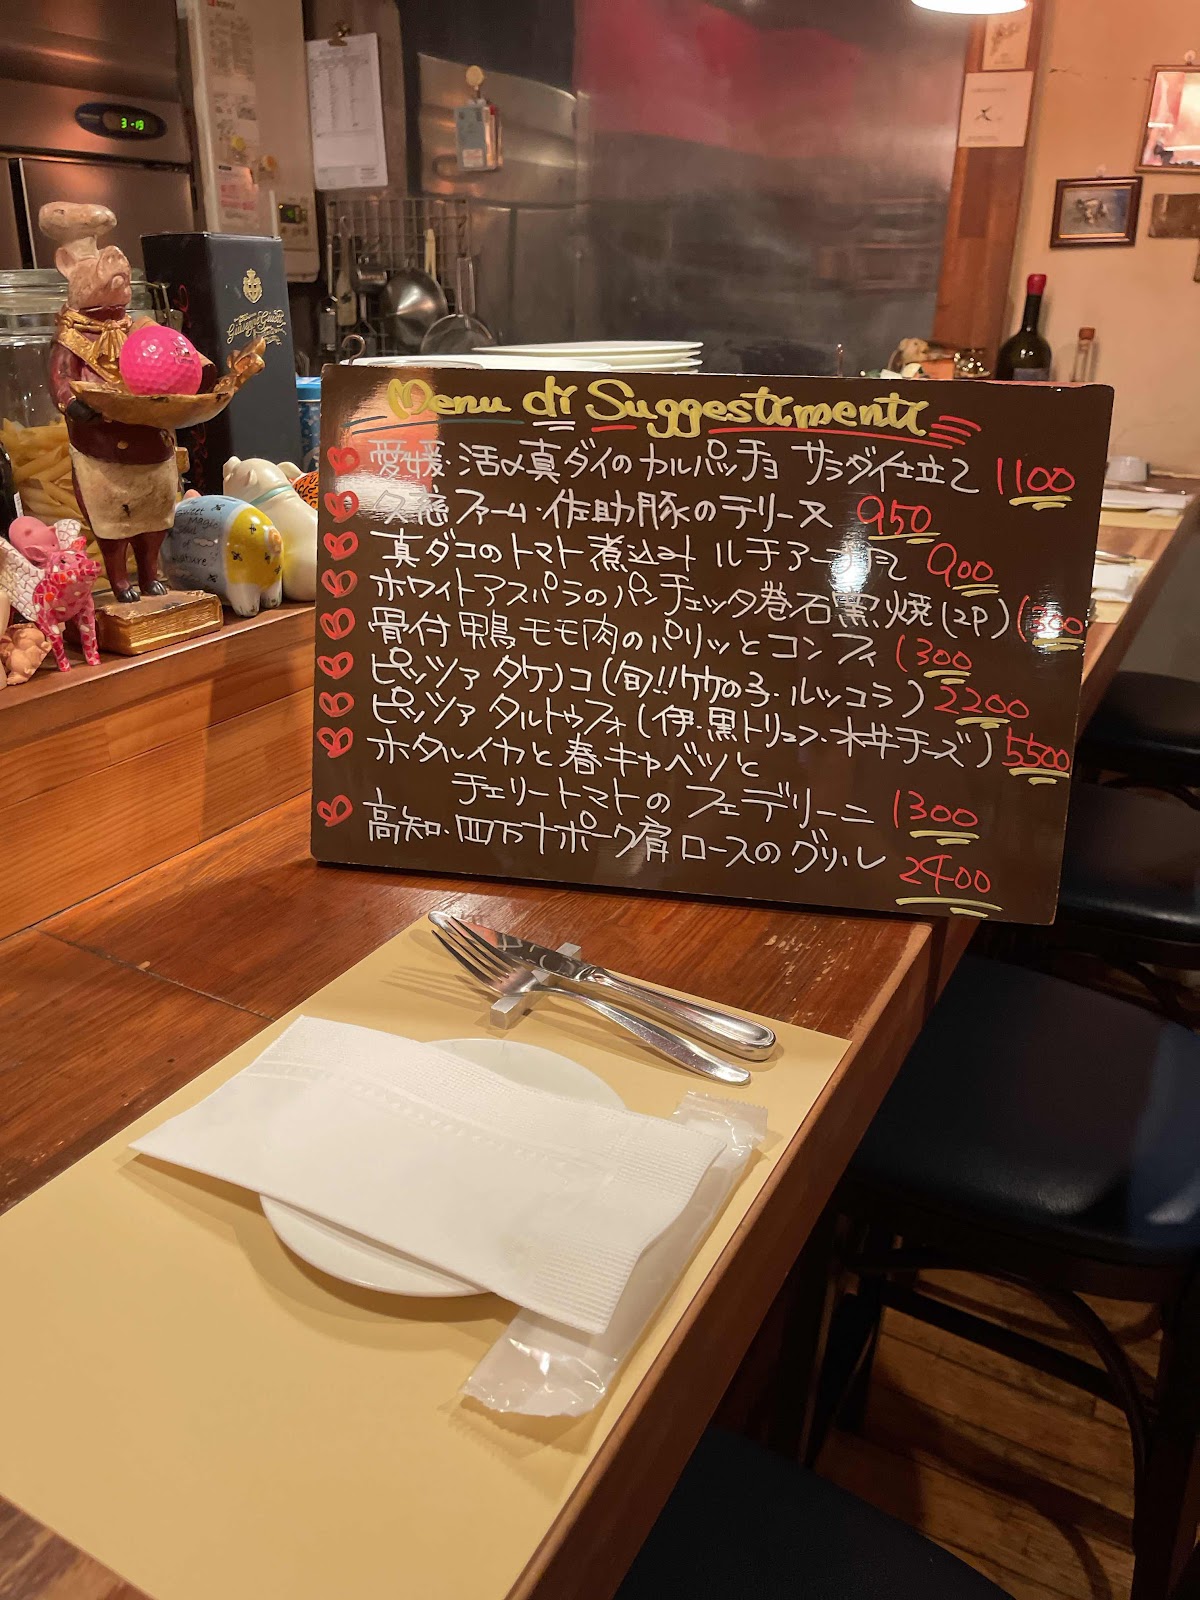 3-19
Giuseppe Giusti
Sweet
Magic
Soul
of
Nature
Menu di Suggestimenti
愛媛・活〆真ダイのカルパッチョ サラダ仕立て 1100
久慈ファーム・佐助豚のテリーヌ 950
真ダコのトマト煮込み ルチアーナ風 900
ホワイトアスパラのパンチェッタ巻石窯焼(2P) 1300
骨付鴨モモ肉のパリッとコンフィ 1300
ピッツァ タケノコ(旬!!竹の子・ルッコラ) 2200
ピッツァ タルトゥフォ(伊・黒トリュフ・水牛チーズ) 5500
ホタルイカと春キャベツと
チェリートマトのフェデリーニ 1300
高知・四万十ポーク肩ロースのグリル 2400